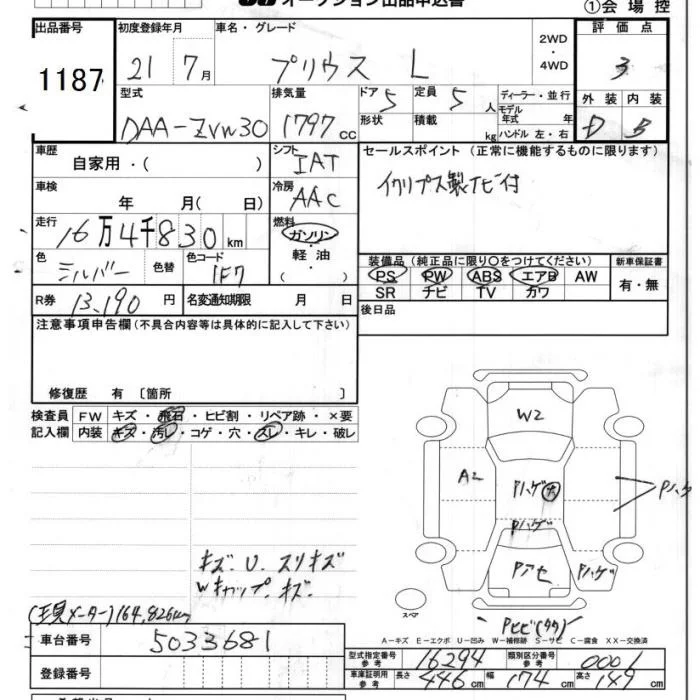 オークション出品申込書
①会場控
出品番号 初度登録年月 車名・グレード 評価点
1187 21 7月 プリウス L 2WD・4WD 3
型式 排気量 ドア 定員 ディーラー・並行 外装 内装
DAA-ZVW30 1797cc 5 5人 モデル年式 年 D B
形状 積載 kg ハンドル 左・右
車歴 シフト セールスポイント(正常に機能するものに限ります)
自家用・( ) IAT
車検 冷房 イクリプス製ナビ付
年 月( 日) AAC
走行 燃料
16万4千830km ガソリン・軽油・( )
色 色替 色コード 装備品(純正品に限り○をつけてください) 新車保証書
シルバー 1F7 PS PW ABS エアB AW 有・無
SR ナビ TV カワ
R券 13,190円 名変通知期限 月 日 後日品
注意事項申告欄(不具合内容等は具体的に記入して下さい)
修復歴 有〔箇所 〕
検査員記入欄 FW キズ・飛石・ヒビ割・リペア跡・×要
内装 キズ・汚レ・コゲ・穴・スレ・キレ・破レ
W2
A2
Pハゲ
Pハゲ
Pハゲ
Pアセ Pハゲ
キズ. U. スリキズ
Wキャップ. キズ.
スペア
Pヒビ(タワ)
(現メーター)164,826km
A-キズ E-エクボ U-凹み W-補修跡 S-サビ C-腐食 XX-交換済
車台番号 5033681
型式指定番号参考 16294 類別区分番号参考 0001
登録番号
車庫証明用参考 長さ 446cm 幅 174cm 高さ 149cm